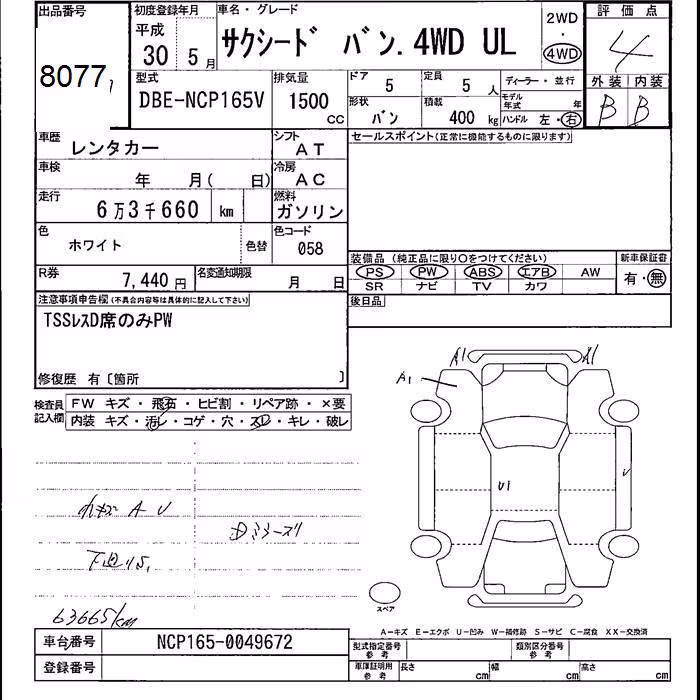 出品番号 初度登録年月 車名・グレード 2WD 評価点
平成 30 5月 サクシード バン.4WD UL 4WD 4
8077
型式 排気量 ドア 5 定員 5人 ディーラー・並行 外装 内装
DBE-NCP165V 1500CC 形状 バン 積載 400kg モデル年式 年 B B
ハンドル 左・右
車歴 レンタカー シフト AT セールスポイント(正常に機能するものに限ります)
車検 年 月( 日) 冷房 AC
走行 6万3千660 km 燃料 ガソリン
色 ホワイト 色替 色コード 058
装備品(純正品に限り○をつけてください) 新車保証書
R券 7,440円 名変通知期限 月 日 PS PW ABS エアB AW 有・無
SR ナビ TV カワ
注意事項申告欄(不具合内容等は具体的に記入して下さい) 後日品
TSSレスD席のみPW
修復歴 有〔箇所 〕
A1 A1
A1
検査員記入欄 FW キズ・飛石・ヒビ割・リペア跡・×要
内装 キズ・汚レ・コゲ・穴・スレ・キレ・破レ
U1 U
小キズ A U
Dミラースリ
下回りS,
スペア
63665km
A−キズ E−エクボ U−凹み W−補修跡 S−サビ C−腐食 XX−交換済
車台番号 NCP165-0049672 型式指定番号 参考 類別区分番号 参考
登録番号 車庫証明用 参考 長さ cm 幅 cm 高さ cm